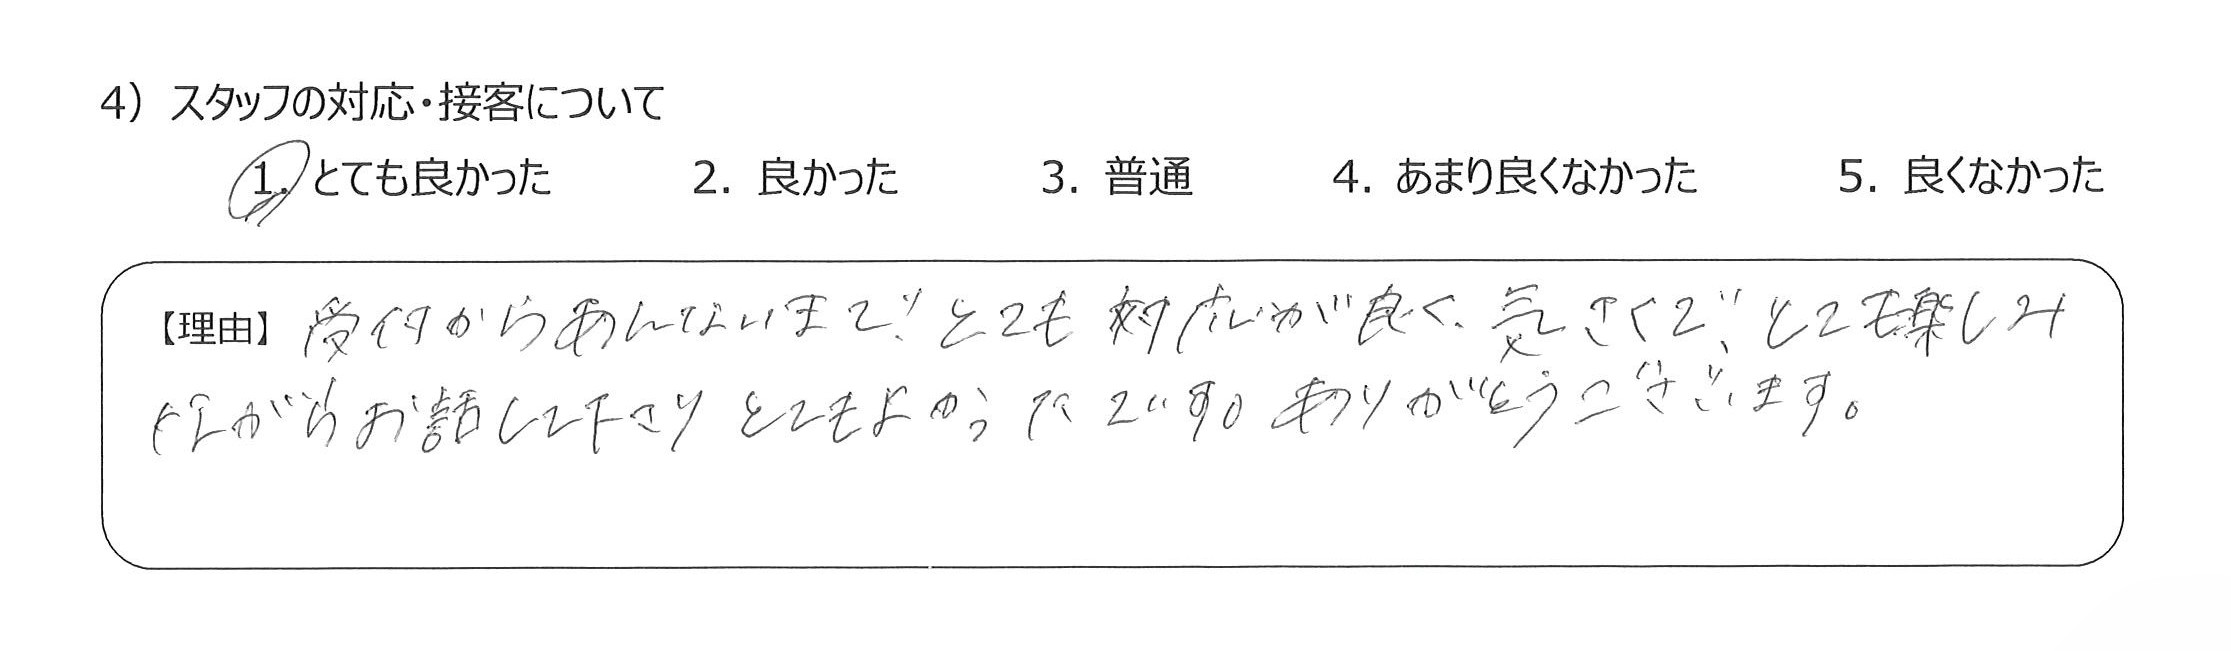 4）スタッフの対応・接客について
1. とても良かった 2. 良かった 3. 普通 4. あまり良くなかった 5. 良くなかった
【理由】受付からあんないまで、とても対応が良く、気さくで、とても楽しみ
ながらお話して下さりとてもよかったです。ありがとうございます。